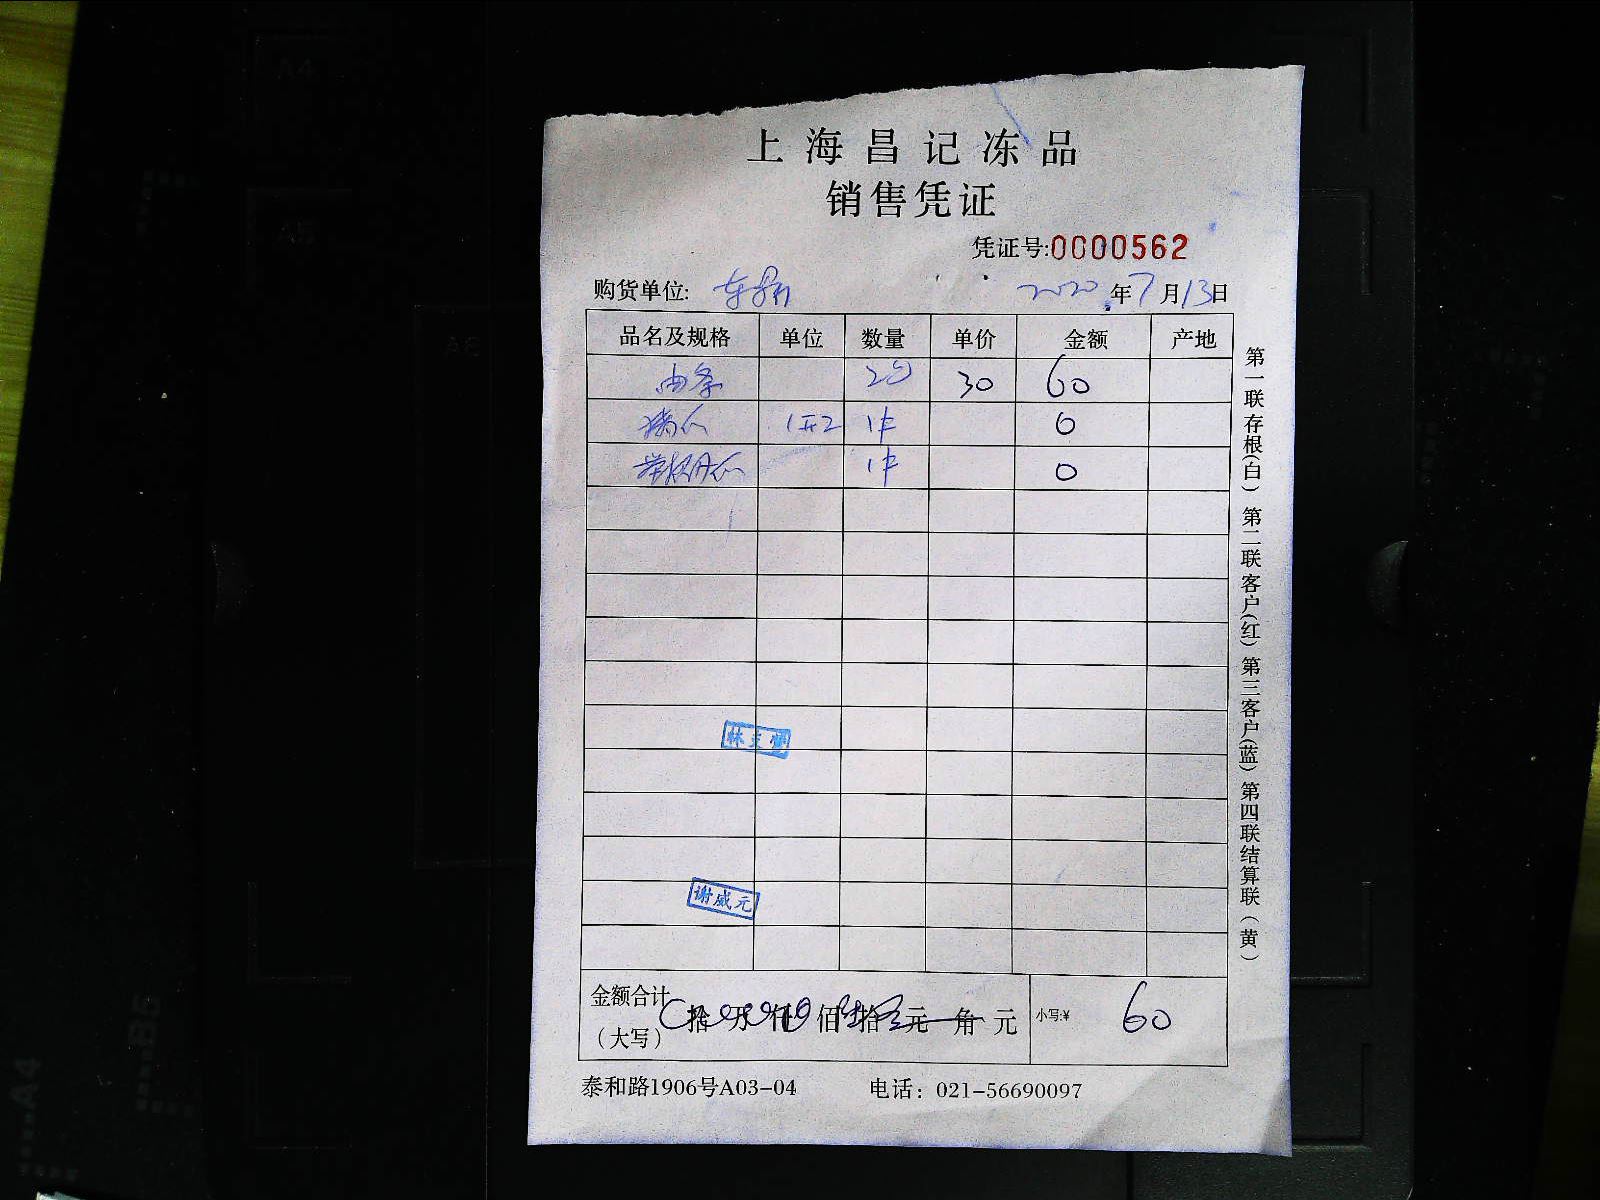 上海昌记冻品
销售凭证
凭证号:0000562
购货单位: 2020年7月13日
品名及规格 单位 数量 单价 金额 产地
油条 2包 30 60
1件 0
1件 0
谢威元
金额合计 拾 万 仟 佰 拾 元 角 元 小写:¥ 60
(大写)
泰和路1906号A03-04 电话: 021-56690097
第一联存根(白) 第二联客户(红) 第三客户(蓝) 第四联结算联(黄)
A4
A5
A6
B5
A4